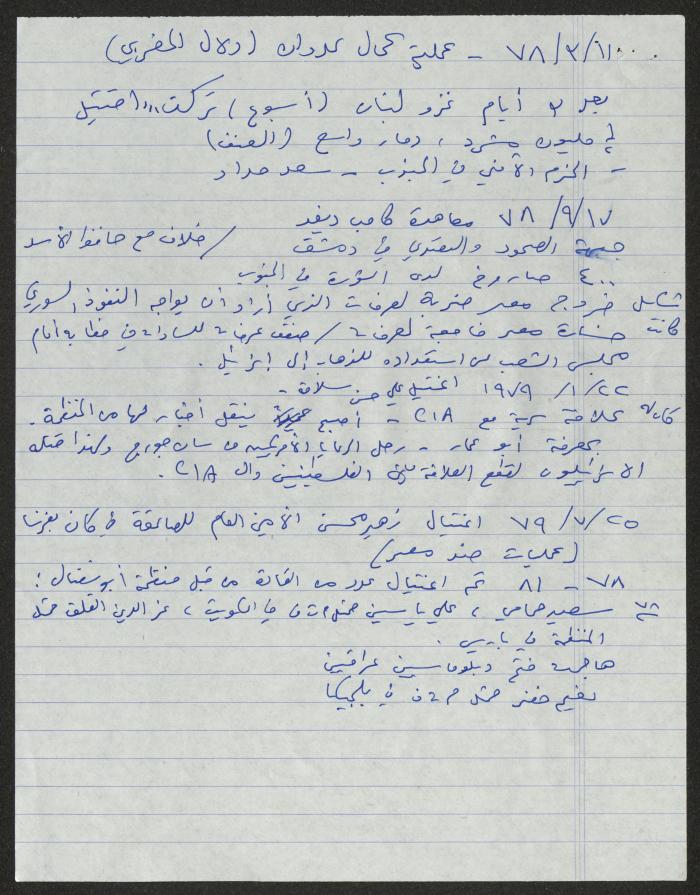 ٧٨/٣/١١ - عملية كمال عدوان (دلال المغربي)
بعد ٣ أيام غزو لبنان (أسبوع) تركت ٠٠٠ا قتيل
مليون مشرد ، دمار واسع (العنف)
- الحزام الأمني في الجنوب - سعد حداد
٧٨/٩/١٧ معاهدة كامب ديفيد
جبهة الصمود والتصدي في دمشق / خلاف مع حافظ الأسد
٤٠٠ صاروخ لدى الثورة في الجنوب
شكل خروج مصر ضربة لعرفات الذي أراد أن يواجه النفوذ السوري
كانت خسارة مصر فاجعة لعرفات / صفق عرفات للسادات في خطابه أمام
مجلس الشعب عن استعداده للذهاب إلى إسرائيل .
١٩٧٩/١/٢٢ اغتيل علي حسن سلامة -
كان له علاقة سرية مع CIA - أصبح ينقل أخبار لها من المنظمة .
بمعرفة أبو عمار - رحل الرعايا الأمريكيين من سان جورج ولهذا قتله
الاسرائيليون لقطع العلاقة بين الفلسطينيين وال CIA .
٧٩/٧/٢٥ اغتيال زهير محسن الأمين العام للصاعقة في كان بفرنسا
(عمليات ضد مصر)
٧٨ - ٨١ تم اغتيال عدد من القادة من قبل منظمة أبو نضال :
سعيد حمامي ، علي ياسين ممثل م ت ف في الكويت ، عز الدين القلق ممثل
المنظمة في باريس .
هاجمت فتح دبلوماسيين عراقيين
نعيم خضر ممثل م ت ف في بلجيكا